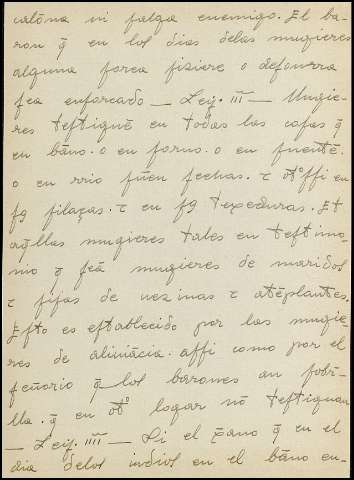 calōna ni palga enemigo. Et ba-
ron q̄ en los dias delas mugieres
alguna forca fiziere o defonrra
fea enforcado — Ley. III — Mugie-
res teftiguē en todas las cafas q̄
en bāno. o en forno. o en fuentē.
o en rrio fuen fechas. τ ot⁰ffi en
fg filaças. τ en fg texeduras. Et
aq̄llas mugieres tales en teftimo-
nio q̄ feā mugieres de maridos
τ fijas de vezinas τ atēplantes.
Efto es eftablecido por las mugie-
res de alimācia. affi como por el
feñorio q̄ los barones an fobr'-
lla. q̄ en ot⁰ logar nō teftiguan
— Ley. IIII — Si el xāno q̄ en el
dia delos indios en el bāno en-